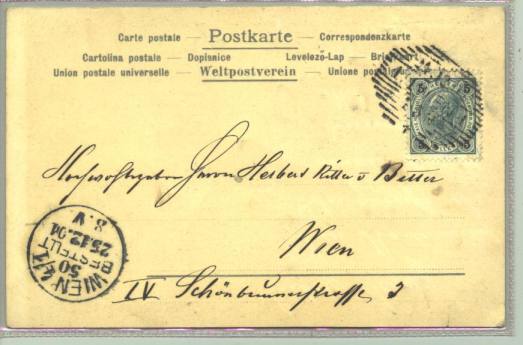 Carte postale — Postkarte — Correspondenzkarte
Cartolina postale — Dopisnice Levelező-Lap — Brie
Union postale universelle — Weltpostverein — Unione postale
5 5
Hochwohlgeboren Herrn Herbert Ritter v
Wien
IV Schönbrunnerstrasse 3
WIEN 4/1
50
BESTELLT
25.12.01
8.V